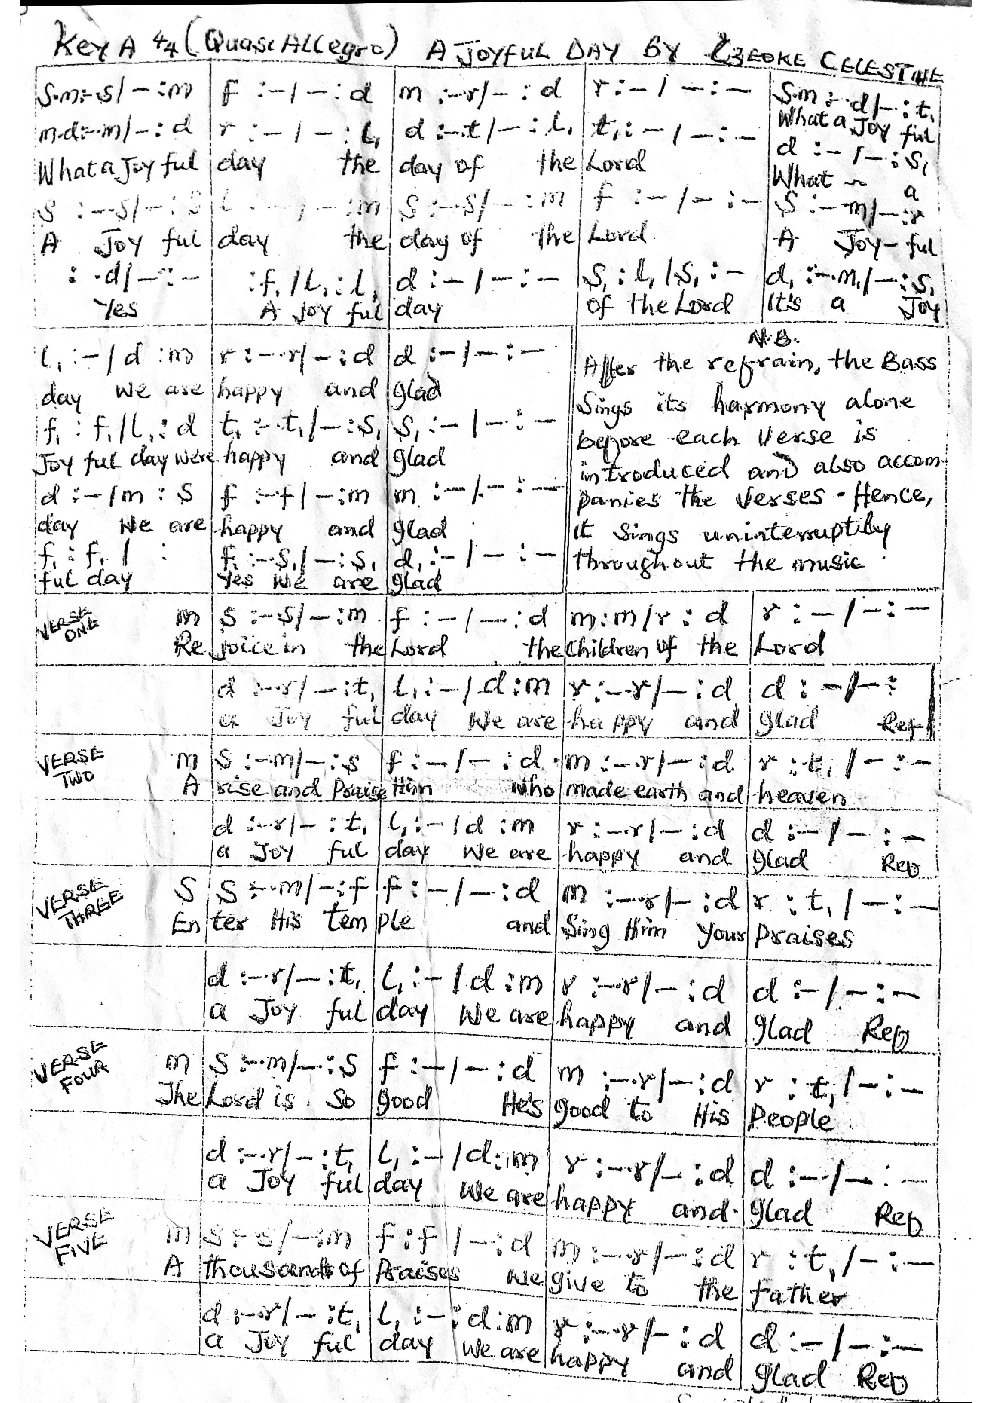 Key A 4/4 (Quasi Allegro) A JOYFUL DAY BY EZEOKE CELESTINE
S.m:-.s/-:m f:-/-:d m:-.r/-:d r:-/-:- S.m:-.d/-:t,
m.d:-.m/-:d r:-/-:l, d:-.t/-:l, t,:-/-:- What a Joy ful
What a Joy ful day the day of the Lord d:-/-:S,
What ~ a
S:-.s/-:s l:-/-:m S:-.s/-:m f:-/-:- S:-.m/-:r
A Joy ful day the day of the Lord A Joy-ful
:-.d/-:- :f,/l,:l, d:-/-:- S,:l,/S,:- d,:-.m,/-:S,
Yes A Joy ful day of the Lord It's a Joy
l,:-/d:m r:-.r/-:d d:-/-:-
day We are happy and glad
f,:f,/l,:d t,:-.t,/-:S, S,:-/-:-
Joy ful day were happy and glad
d:-/m:S f:-.f/-:m m:-/-:-
day We are happy and glad
f,:f,/ : f,:-.S,/-:S, d,:-/-:-
ful day Yes We are glad
N.B.
After the refrain, the Bass
Sings its harmony alone
before each verse is
introduced and also accom-
panies the verses - Hence,
it sings uninterruptibly
throughout the music.
VERSE ONE m S:-.s/-:m f:-/-:d m:m/r:d r:-/-:-
Re joice in the Lord the Children of the Lord
d:-.r/-:t, l,:-/d:m r:-.r/-:d d:-/-:
a Joy ful day We are happy and glad Ref
VERSE TWO m S:-.m/-:s f:-/-:d m:-.r/-:d r:t,/-:-
A rise and Praise Him who made earth and heaven
d:-.r/-:t, l,:-/d:m r:-.r/-:d d:-/-:-
a Joy ful day We are happy and glad Rep
VERSE THREE S S:-.m/-:f f:-/-:d m:-.r/-:d r:t,/-:-
En ter His tem ple and Sing Him your Praises
d:-.r/-:t, l,:-/d:m r:-.r/-:d d:-/-:-
a Joy ful day We are happy and glad Rep
VERSE FOUR m S:-.m/-:S f:-/-:d m:-.r/-:d r:t,/-:-
The Lord is So good He's good to His People
d:-.r/-:t, l,:-/d:m r:-.r/-:d d:-/-:-
a Joy ful day We are happy and glad Rep
VERSE FIVE m S:-.s/-:m f:f/-:d m:-.r/-:d r:t,/-:-
A thousands of Praises We give to the Father
d:-.r/-:t, l,:-:d:m r:-.r/-:d d:-/-:-
a Joy ful day We are happy and glad Rep